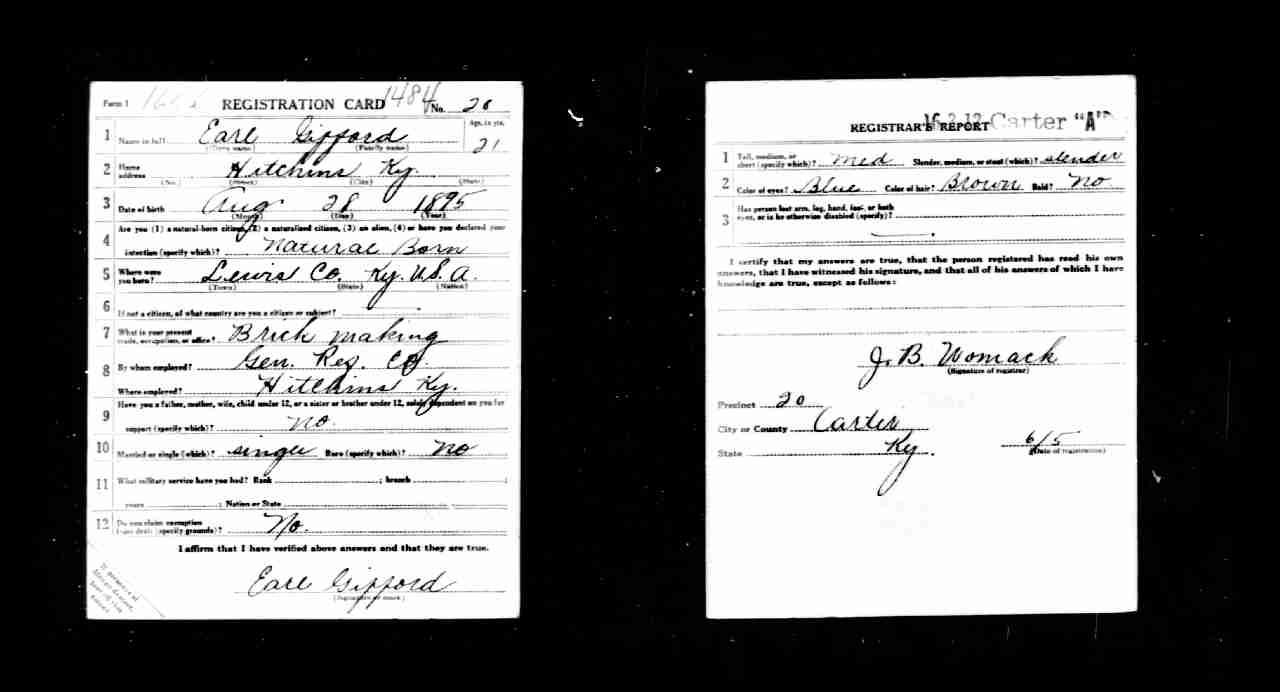 Form 1 REGISTRATION CARD 1484 No. 20
1 Name in full Earl Gifford Age, in yrs. 21
(Given name) (Family name)
2 Home address Hitchins Ky.
(No.) (Street) (City) (State)
3 Date of birth Aug 28 1895
(Month) (Day) (Year)
4 Are you (1) a natural-born citizen, (2) a naturalized citizen, (3) an alien, (4) or have you declared your
intention (specify which)? Natural Born
5 Where were you born? Lewis Co. Ky. U.S.A.
(Town) (State) (Nation)
6 If not a citizen, of what country are you a citizen or subject?
7 What is your present trade, occupation, or office? Brick making
8 By whom employed? Gen. Res. Co
Where employed? Hitchins Ky.
9 Have you a father, mother, wife, child under 12, or a sister or brother under 12, solely dependent on you for
support (specify which)? No
10 Married or single (which)? single Race (specify which)? No
11 What military service have you had? Rank ; branch ;
years ; Nation or State
12 Do you claim exemption from draft (specify grounds)? No.
I affirm that I have verified above answers and that they are true.
Earl Gifford
(Signature or mark)
REGISTRAR'S REPORT 16 2 12 Carter "A"
1 Tall, medium, or short (specify which)? Med Slender, medium, or stout (which)? slender
2 Color of eyes? Blue Color of hair? Brown Bald? No
3 Has person lost arm, leg, hand, foot, or both
eyes, or is he otherwise disabled (specify)?
I certify that my answers are true, that the person registered has read his own
answers, that I have witnessed his signature, and that all of his answers of which I have
knowledge are true, except as follows:
J. B. Womack
(Signature of registrar)
Precinct 20
City or County Carter
State Ky. 6/5
(Date of registration)